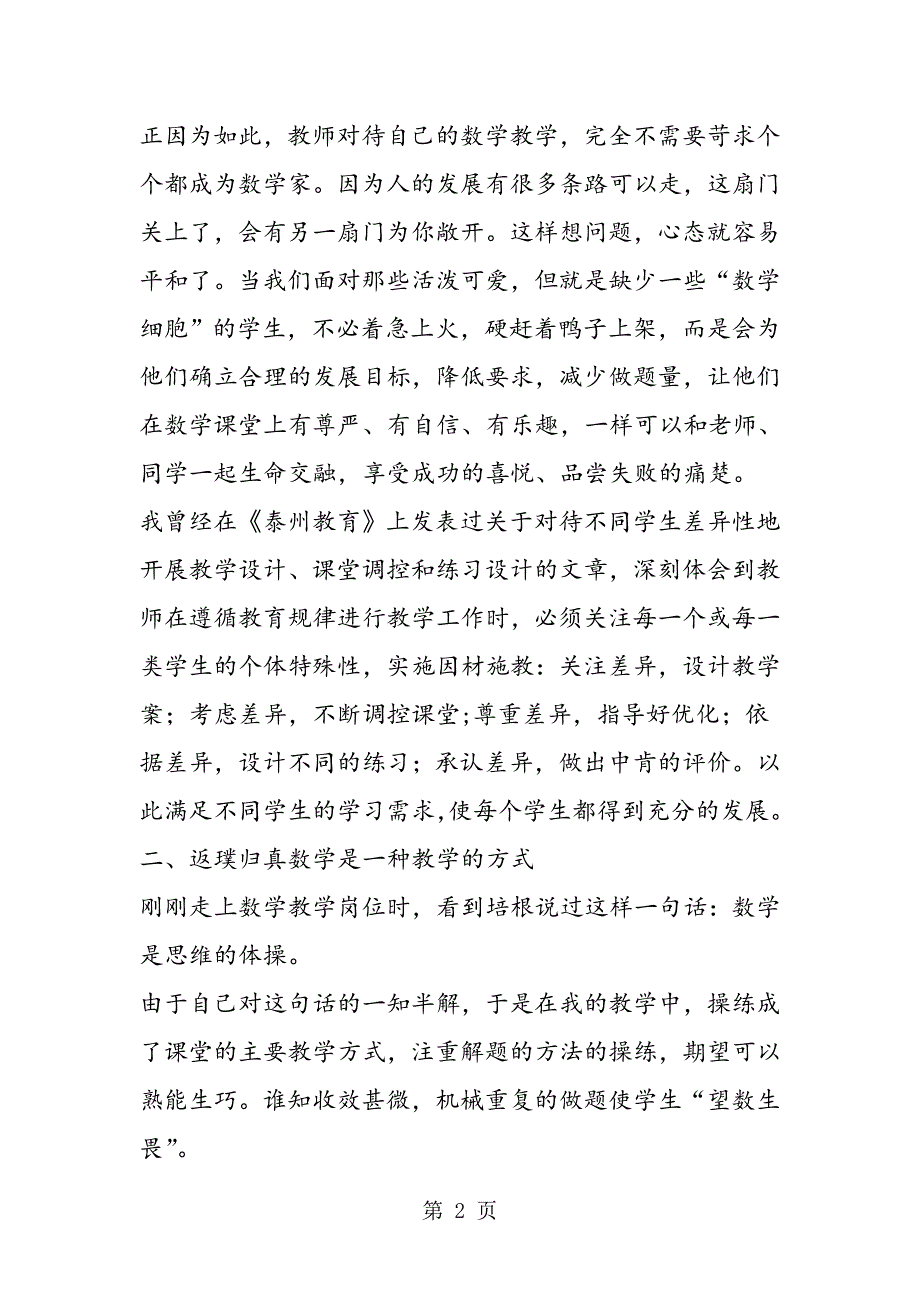 正因为如此，教师对待自己的数学教学，完全不需要苛求个
个都成为数学家。因为人的发展有很多条路可以走，这扇门
关上了，会有另一扇门为你敞开。这样想问题，心态就容易
平和了。当我们面对那些活泼可爱，但就是缺少一些“数学
细胞”的学生，不必着急上火，硬赶着鸭子上架，而是会为
他们确立合理的发展目标，降低要求，减少做题量，让他们
在数学课堂上有尊严、有自信、有乐趣，一样可以和老师、
同学一起生命交融，享受成功的喜悦、品尝失败的痛楚。
我曾经在《泰州教育》上发表过关于对待不同学生差异性地
开展教学设计、课堂调控和练习设计的文章，深刻体会到教
师在遵循教育规律进行教学工作时，必须关注每一个或每一
类学生的个体特殊性，实施因材施教：关注差异，设计教学
案；考虑差异，不断调控课堂;尊重差异，指导好优化；依
据差异，设计不同的练习；承认差异，做出中肯的评价。以
此满足不同学生的学习需求,使每个学生都得到充分的发展。
二、返璞归真数学是一种教学的方式
刚刚走上数学教学岗位时，看到培根说过这样一句话：数学
是思维的体操。
由于自己对这句话的一知半解，于是在我的教学中，操练成
了课堂的主要教学方式，注重解题的方法的操练，期望可以
熟能生巧。谁知收效甚微，机械重复的做题使学生“望数生
畏”。
第 2 页